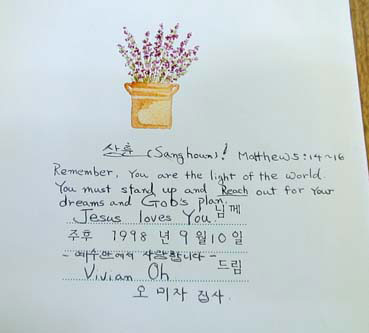 상훈 (Sanghoun)! Matthew 5:14~16
Remember, You are the light of the world.
You must stand up and Reach out for Your
dreams and God's plan.
Jesus loves You. 님께
주후 1998 년 9 월 10 일
- 예수안에서 사랑합니다 -
Vivian Oh 드림
오 미자 집사.